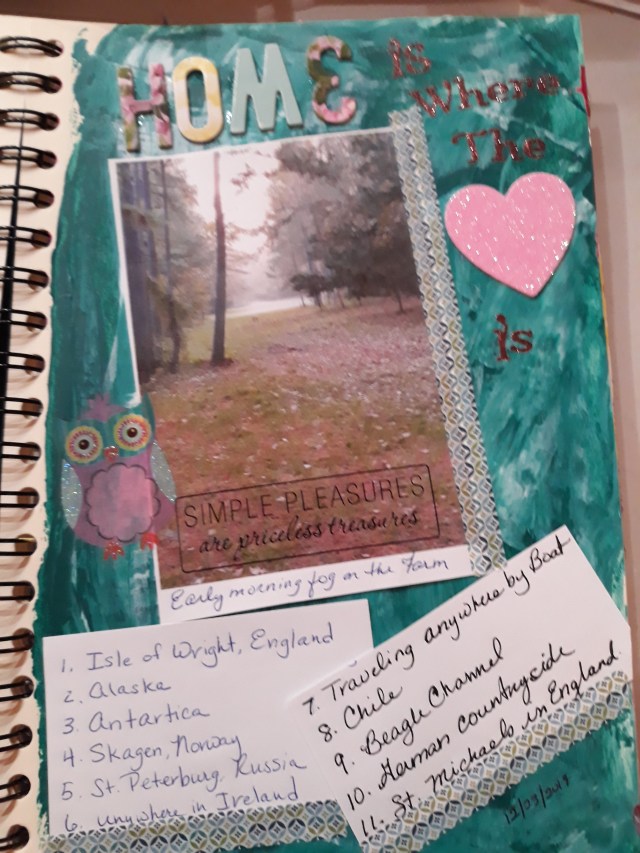 HOME is
Where
The
is
SIMPLE PLEASURES
are priceless treasures
Early morning fog on the Farm
1. Isle of Wright, England
2. Alaska
3. Antartica
4. Skagen, Norway
5. St. Peterburg, Russia
6. anywhere in Ireland
7. Traveling anywhere by Boat
8. Chile
9. Beagle Channel
10. German countryside
11. St. Michaels in England